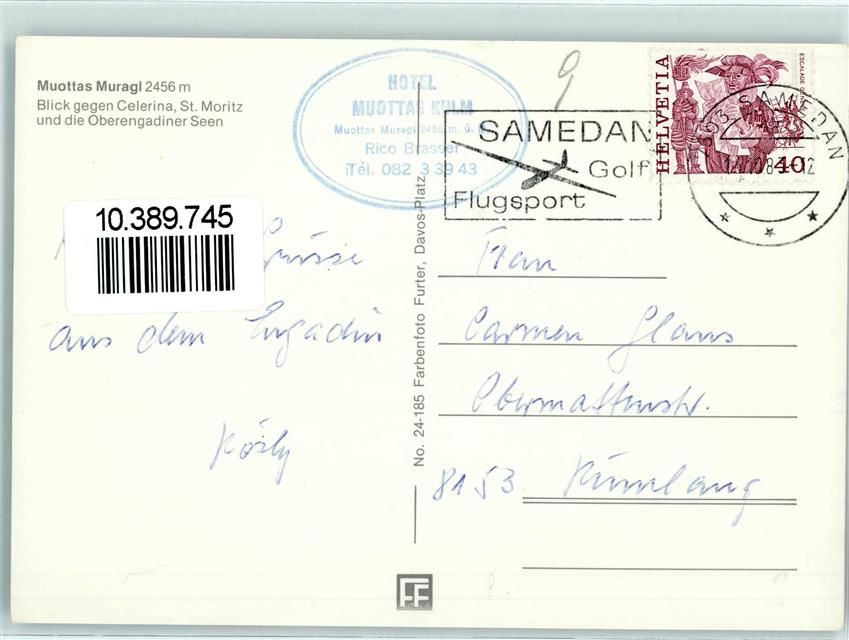 Muottas Muragl 2456 m
Blick gegen Celerina, St. Moritz
und die Oberengadiner Seen
HOTEL
MUOTTAS KULM
Muottas Muragl 2456 m. ü. M.
Rico Brasser
Tél. 082 3 39 43
9
SAMEDAN
Golf
Flugsport
HELVETIA
ESCALADE GENÈVE
40
SAMEDAN
10.389.745
Grüsse
aus dem Engadin
Rösly
No. 24-185 Farbenfoto Furter, Davos-Platz
Frau
Carmen Glaus
Obermattenstr.
8153 Rümlang
FF